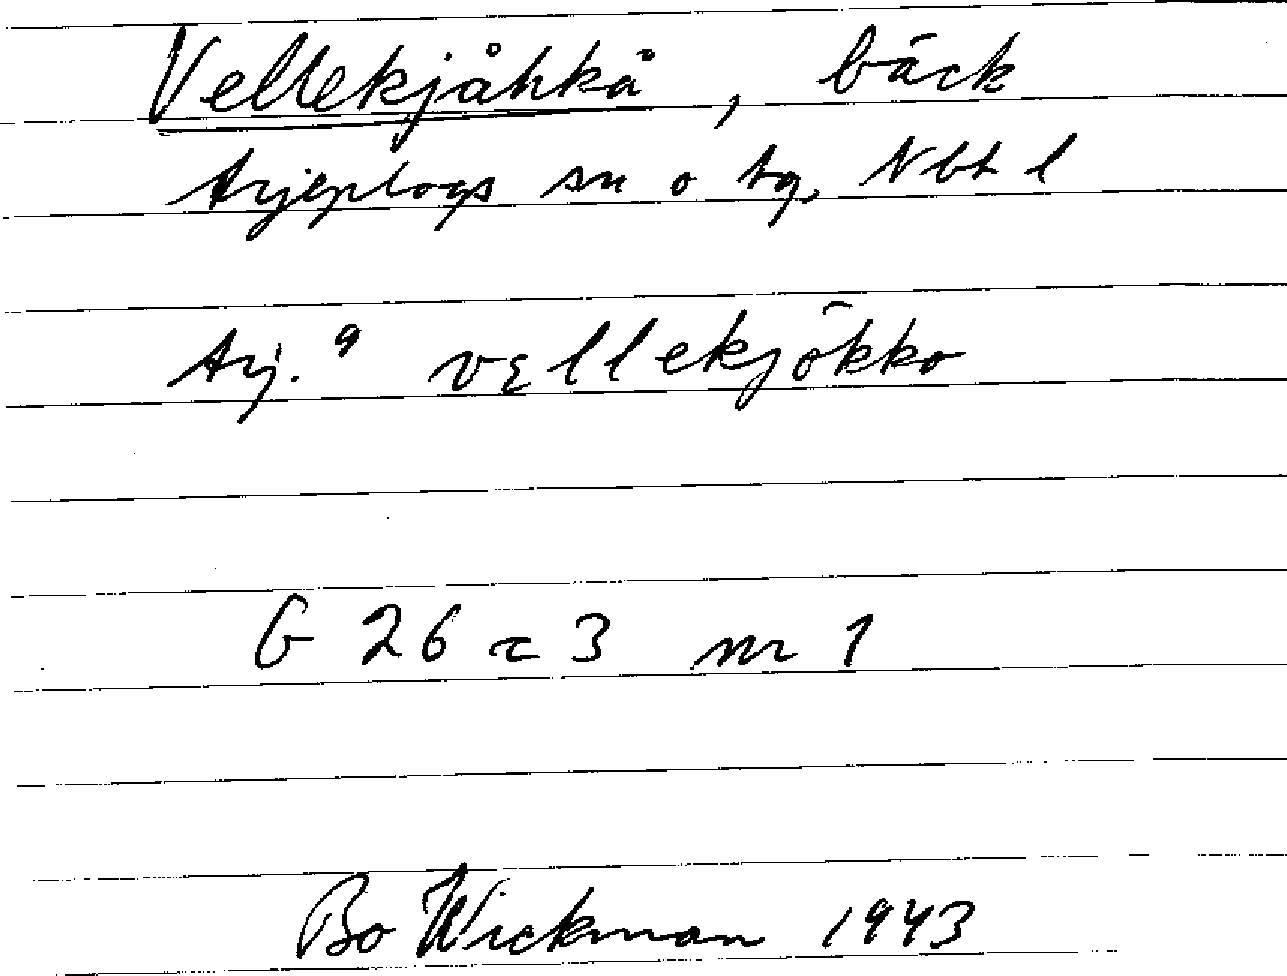 Vellekjåhkå, bäck
Arjeplogs sn o tg, Nbt l
Arj. 9 vęllekjōkko
G 26 c 3 nr 1
Bo Wickman 1943